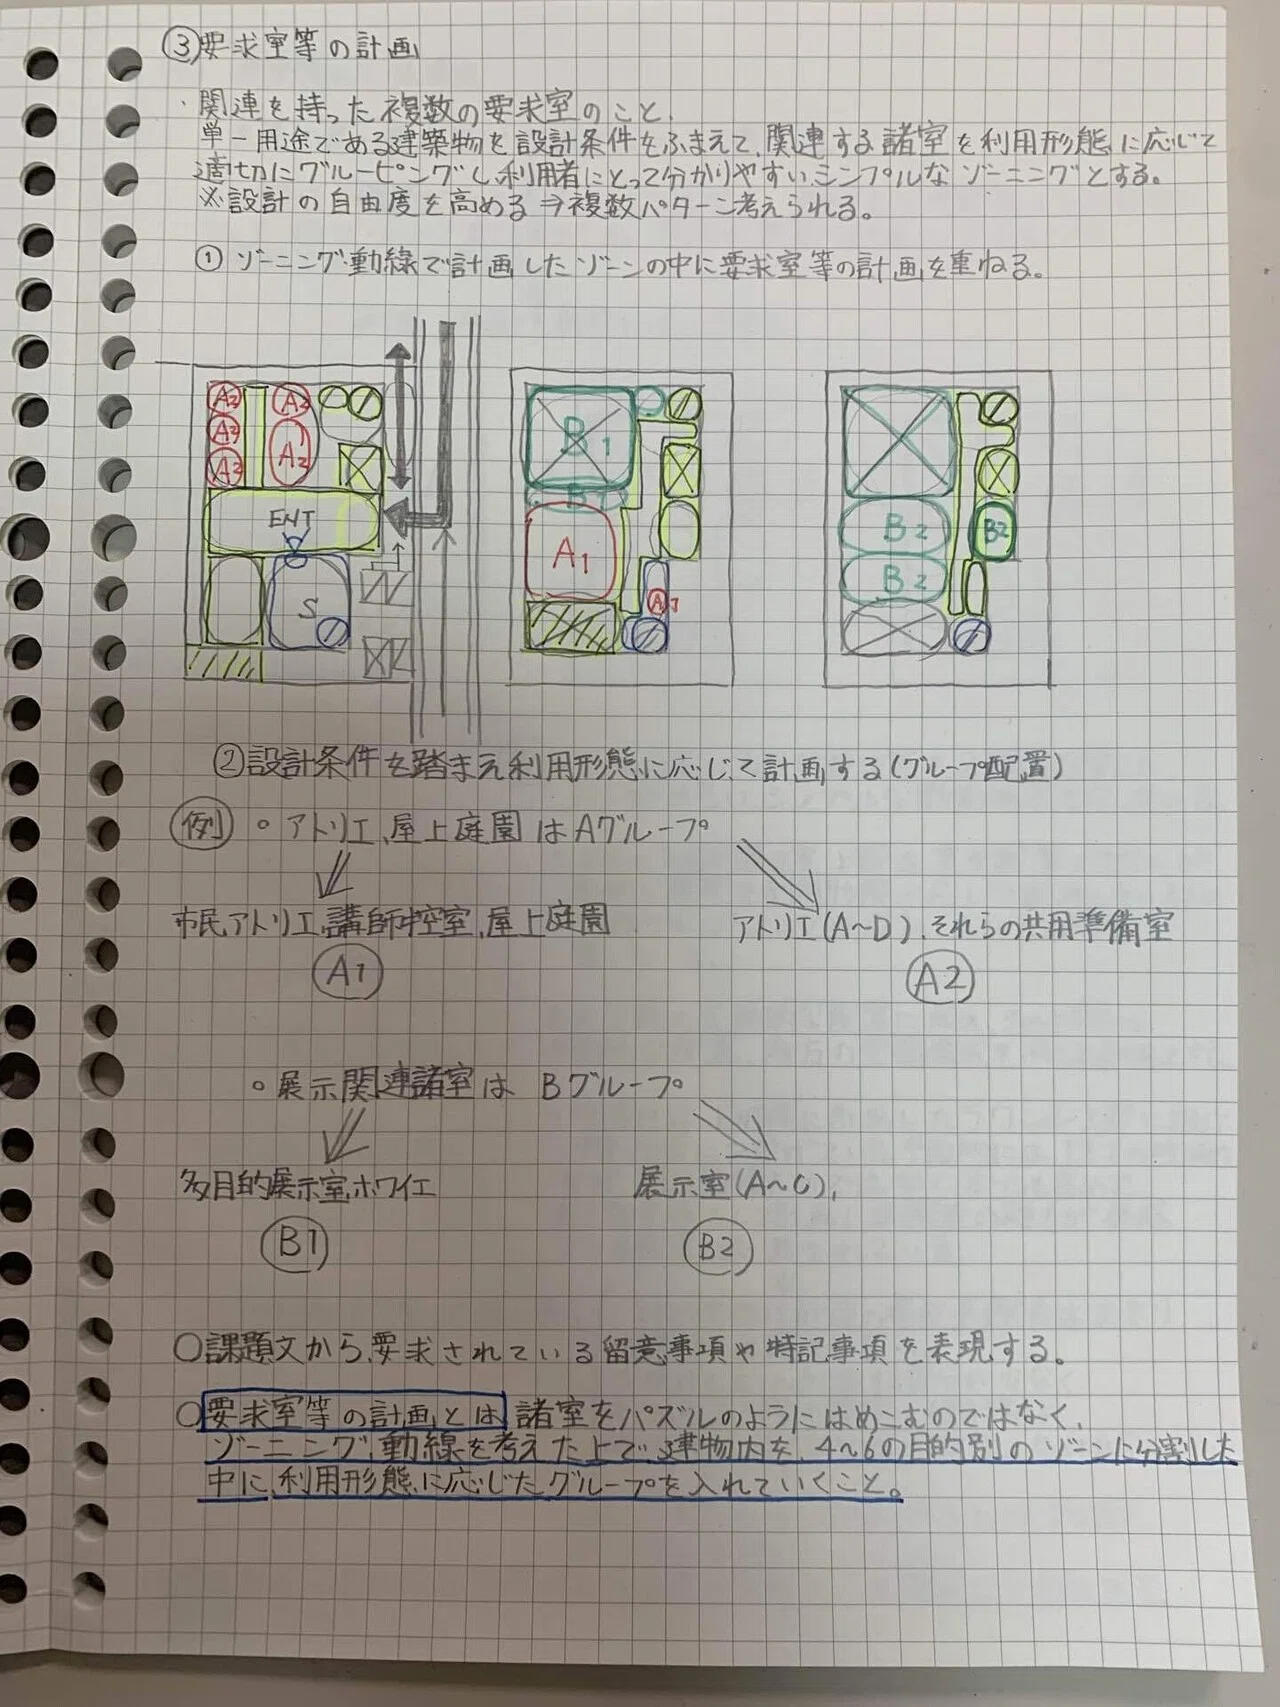 ③要求室等の計画
・関連を持った複数の要求室のこと、
単一用途である建築物を設計条件をふまえて、関連する諸室を利用形態に応じて
適切にグルーピングし、利用者にとって分かりやすい、シンプルなゾーニングとする。
※設計の自由度を高める⇒複数パターン考えられる。
①ゾーニング、動線で計画したゾーンの中に要求室等の計画を重ねる。
A2 A2
A2
A2 A2
ENT
S
B1
B1
A1
A1
B2 B2
B2
②設計条件を踏まえ利用形態に応じて計画する(グループ配置)
例 ○アトリエ、屋上庭園はAグループ
市民アトリエ、講師控室、屋上庭園 アトリエ(A～D)、それらの共用準備室
A1 A2
○展示関連諸室は Bグループ
多目的展示室、ホワイエ 展示室(A～C)、
B1 B2
○課題文から、要求されている留意事項や特記事項を表現する。
○要求室等の計画とは 諸室をパズルのようにはめこむのではなく、
ゾーニング、動線を考えた上で、建物内を、4～6の目的別のゾーンに分割した
中に、利用形態に応じたグループを入れていくこと。